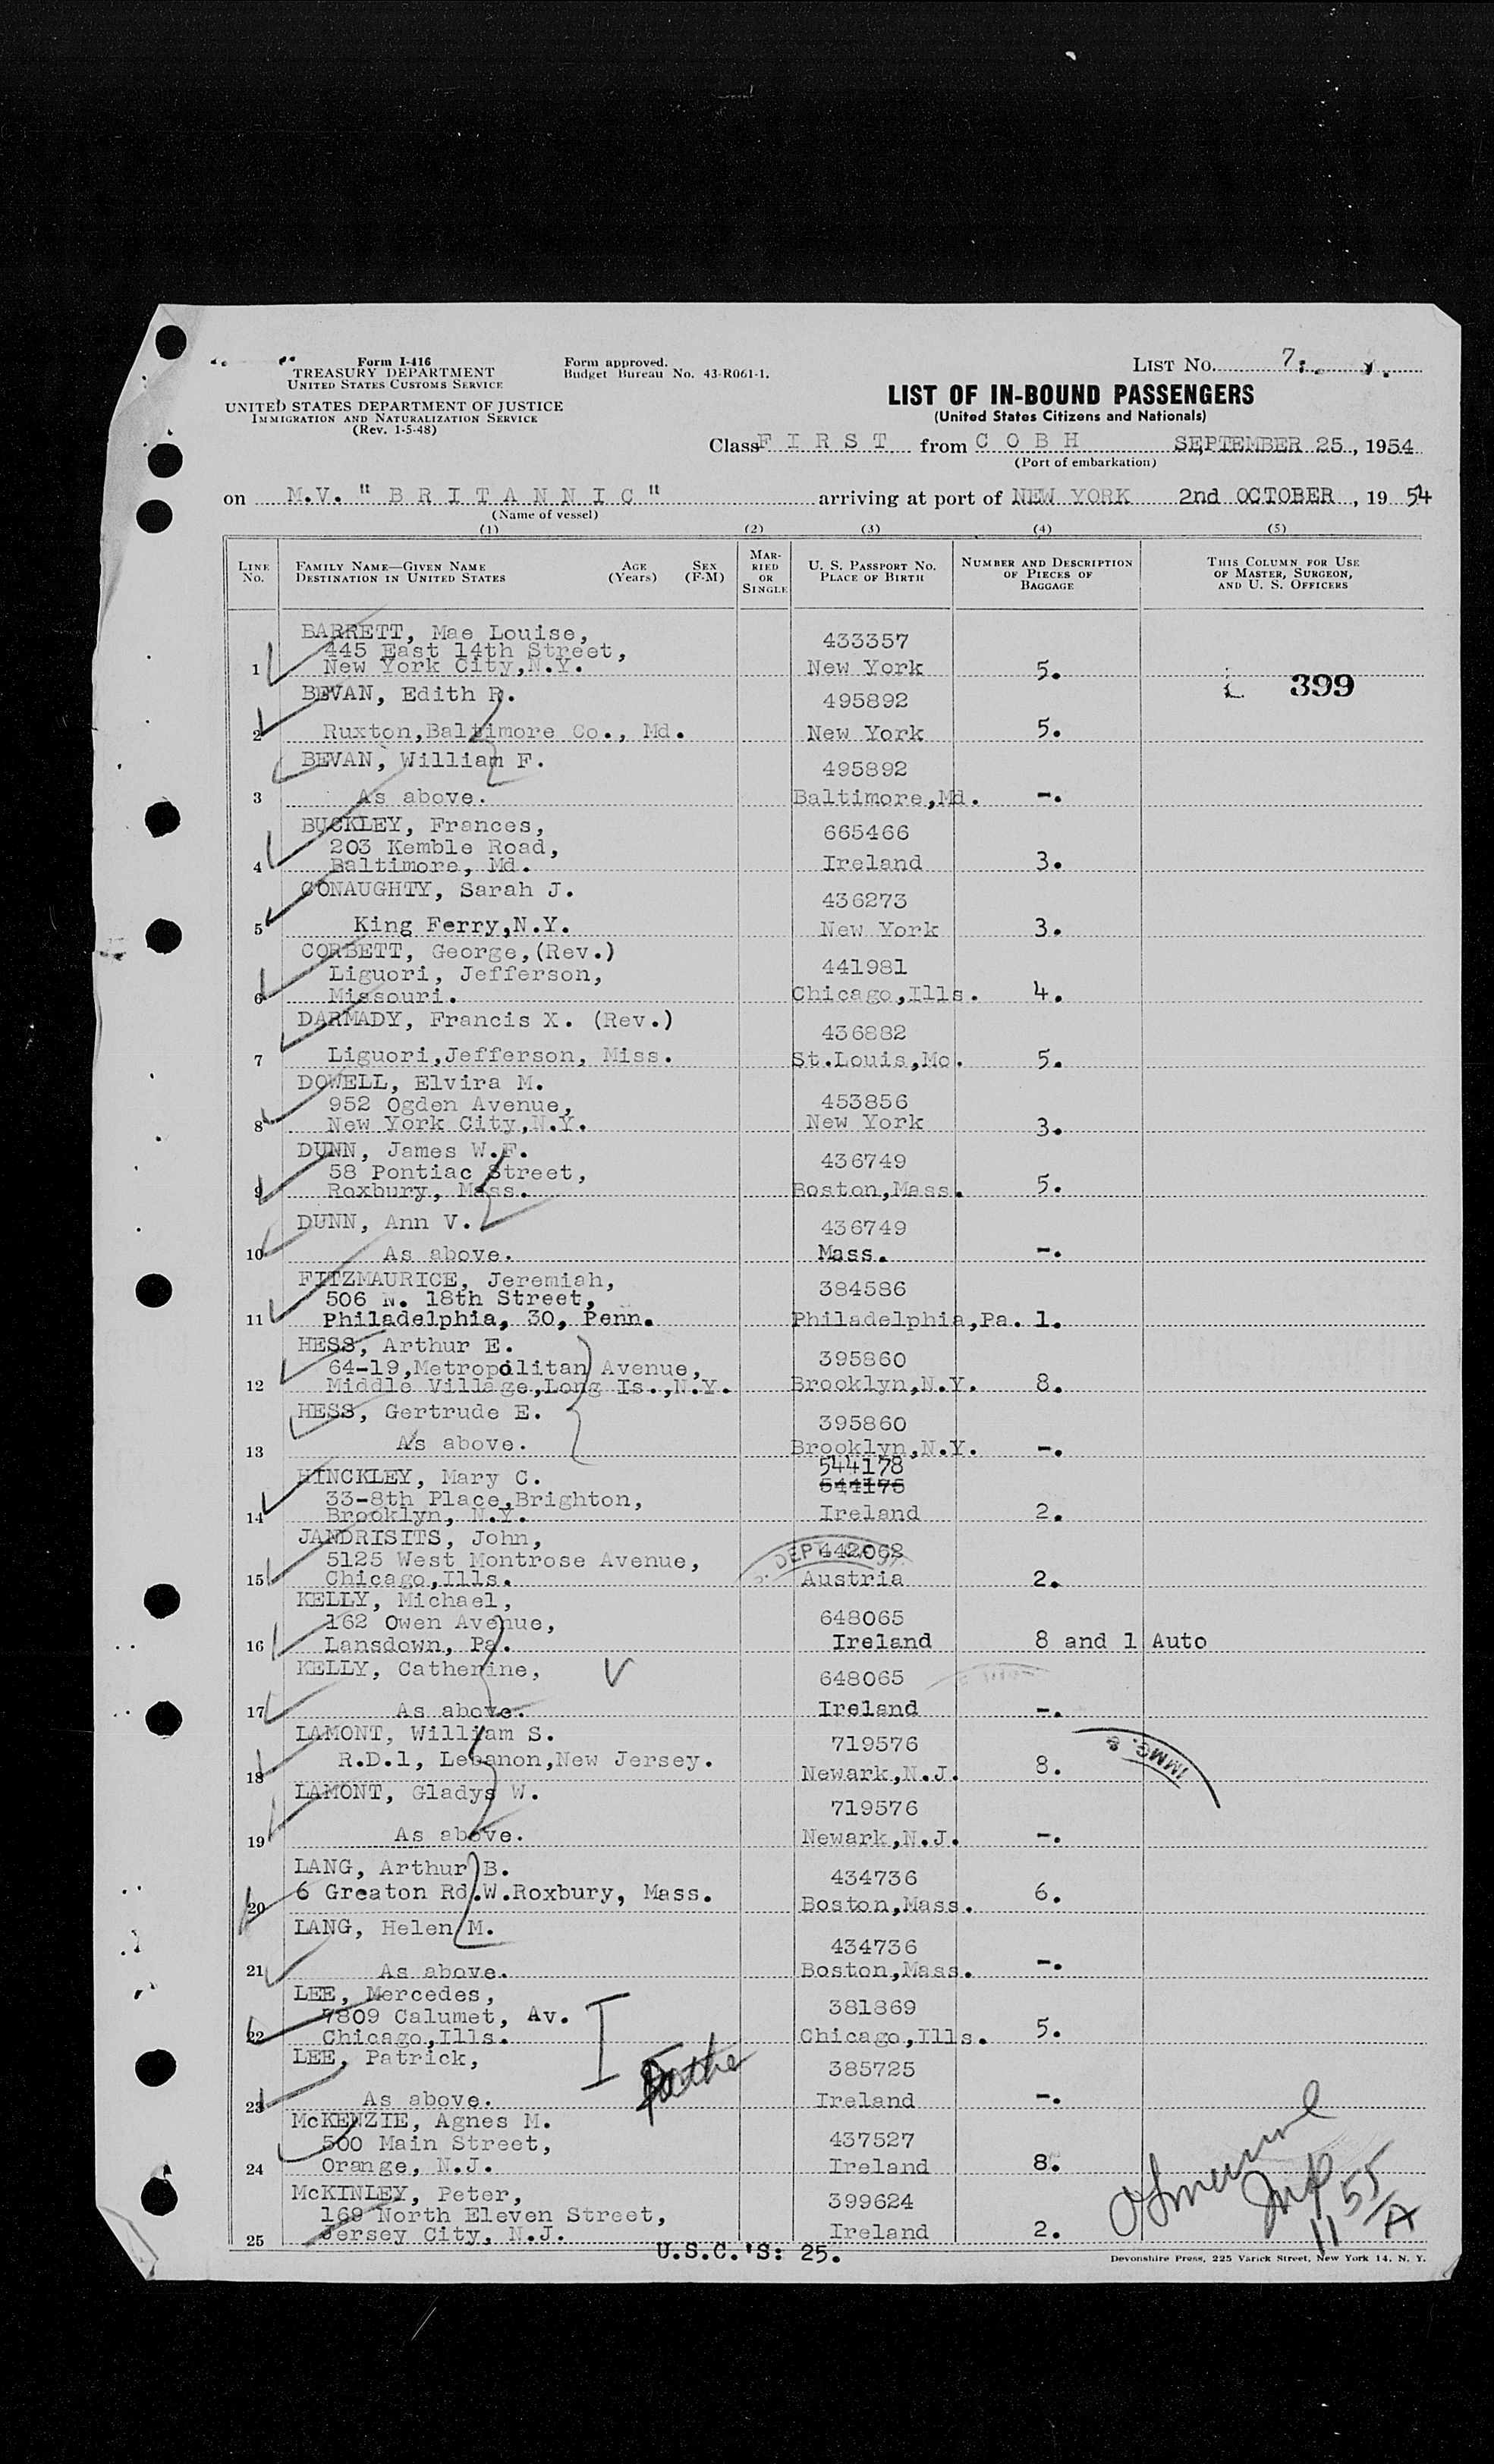 Form I-416
TREASURY DEPARTMENT
UNITED STATES CUSTOMS SERVICE
UNITED STATES DEPARTMENT OF JUSTICE
IMMIGRATION AND NATURALIZATION SERVICE
(Rev. 1-5-48)
Form approved.
Budget Bureau No. 43-R061-1.
LIST No. 7.
LIST OF IN-BOUND PASSENGERS
(United States Citizens and Nationals)
Class F I R S T from C O B H SEPTEMBER 25, 1954
(Port of embarkation)
on M.V. " B R I T A N N I C " arriving at port of NEW YORK 2nd OCTOBER, 19 54
(Name of vessel)
(1) (2) (3) (4) (5)
LINE NO. FAMILY NAME—GIVEN NAME DESTINATION IN UNITED STATES AGE (Years) SEX (F-M) MARRIED OR SINGLE U. S. PASSPORT NO. PLACE OF BIRTH NUMBER AND DESCRIPTION OF PIECES OF BAGGAGE THIS COLUMN FOR USE OF MASTER, SURGEON, AND U. S. OFFICERS
BARRETT, Mae Louise, 433357
445 East 14th Street,
1 New York City,N.Y. New York 5.
399
BEVAN, Edith R. 495892
2 Ruxton,Baltimore Co., Md. New York 5.
BEVAN, William F. 495892
3 As above. Baltimore,Md. -.
BUCKLEY, Frances, 665466
203 Kemble Road,
4 Baltimore, Md. Ireland 3.
CONAUGHTY, Sarah J. 436273
5 King Ferry,N.Y. New York 3.
CORBETT, George,(Rev.) 441981
Liguori, Jefferson,
6 Missouri. Chicago,Ills. 4.
DARMADY, Francis X. (Rev.) 436882
7 Liguori,Jefferson, Miss. St.Louis,Mo. 5.
DOWELL, Elvira M. 453856
952 Ogden Avenue,
8 New York City,N.Y. New York 3.
DUNN, James W.F. 436749
58 Pontiac Street,
9 Roxbury, Mass. Boston,Mass. 5.
DUNN, Ann V. 436749
10 As above. Mass. -.
FITZMAURICE, Jeremiah, 384586
506 N. 18th Street,
11 Philadelphia, 30, Penn. Philadelphia,Pa. 1.
HESS, Arthur E. 395860
64-19,Metropolitan Avenue,
12 Middle Village,Long Is.,N.Y. Brooklyn,N.Y. 8.
HESS, Gertrude E. 395860
13 As above. Brooklyn,N.Y. -.
HINCKLEY, Mary C. 544178
33-8th Place,Brighton, 544175
14 Brooklyn, N.Y. Ireland 2.
JANDRISITS, John, 442062
5125 West Montrose Avenue,
15 Chicago,Ills. Austria 2.
KELLY, Michael, 648065
162 Owen Avenue,
16 Lansdown, Pa. Ireland 8 and 1 Auto
KELLY, Catherine, 648065
17 As above. Ireland -.
LAMONT, William S. 719576
18 R.D.1, Lebanon,New Jersey. Newark,N.J. 8.
IMMG. &
LAMONT, Gladys W. 719576
19 As above. Newark,N.J. -.
LANG, Arthur B. 434736
20 6 Greaton Rd.W.Roxbury, Mass. Boston,Mass. 6.
LANG, Helen M. 434736
21 As above. Boston,Mass. -.
LEE, Mercedes, 381869
7809 Calumet, Av.
22 Chicago,Ills. Chicago,Ills. 5.
LEE, Patrick, 385725
23 As above. Ireland -.
McKENZIE, Agnes M. 437527
500 Main Street,
24 Orange, N.J. Ireland 8.
McKINLEY, Peter, 399624
169 North Eleven Street,
25 Jersey City, N.J. Ireland 2.
U.S.C.'S: 25.
Devonshire Press, 225 Varick Street, New York 14, N. Y.